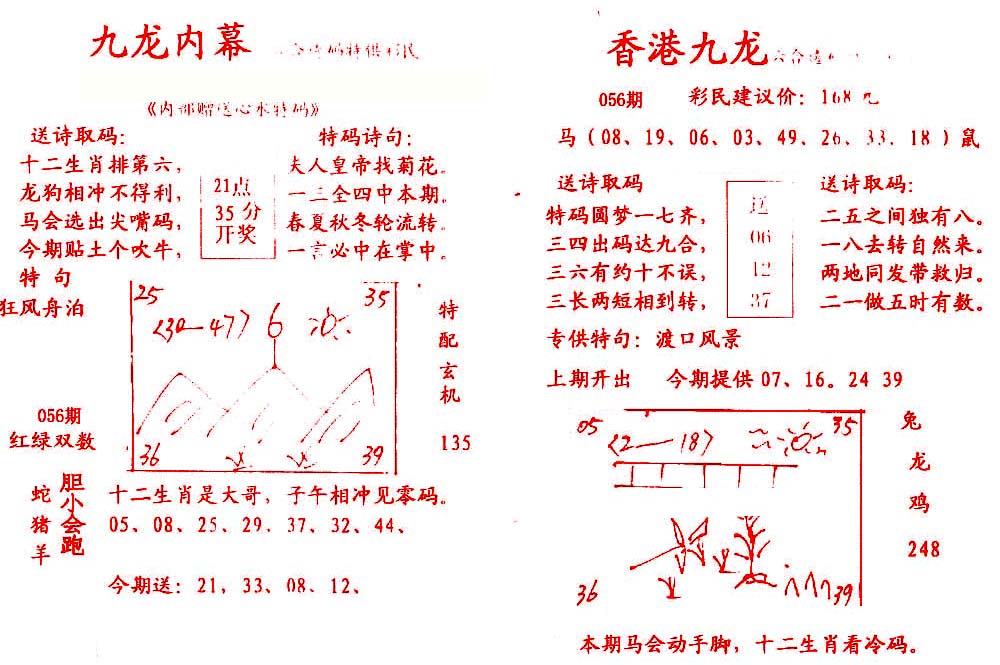 九龙内幕
《内部赠送心水特码》
送诗取码：
十二生肖排第六，
龙狗相冲不得利，
马会选出尖嘴码，
今期贴土个吹牛，
21点
35分
开奖
特码诗句：
夫人皇帝找菊花。
一三全四中本期。
春夏秋冬轮流转。
一言必中在掌中。
特 句
狂风舟泊
25
35
<30—47> 6
36
39
特配玄机
135
056期
红绿双数
蛇猪羊
胆小会跑
十二生肖是大哥，子午相冲见零码。
05、08、25、29、37、32、44、
今期送：21，33、08、12、
香港九龙
056期 彩民建议价：168元
马（08、19、06、03、49、26、33、18）鼠
送诗取码
特码圆梦一七齐，
三四出码达九合，
三六有约十不误，
三长两短相到转，
送
06
12
37
送诗取码：
二五之间独有八。
一八去转自然来。
两地同发带救归。
二一做五时有数。
专供特句：渡口风景
上期开出 今期提供07、16。24 39
05
<2—18>
35
36
39
兔龙鸡
248
本期马会动手脚，十二生肖看冷码。